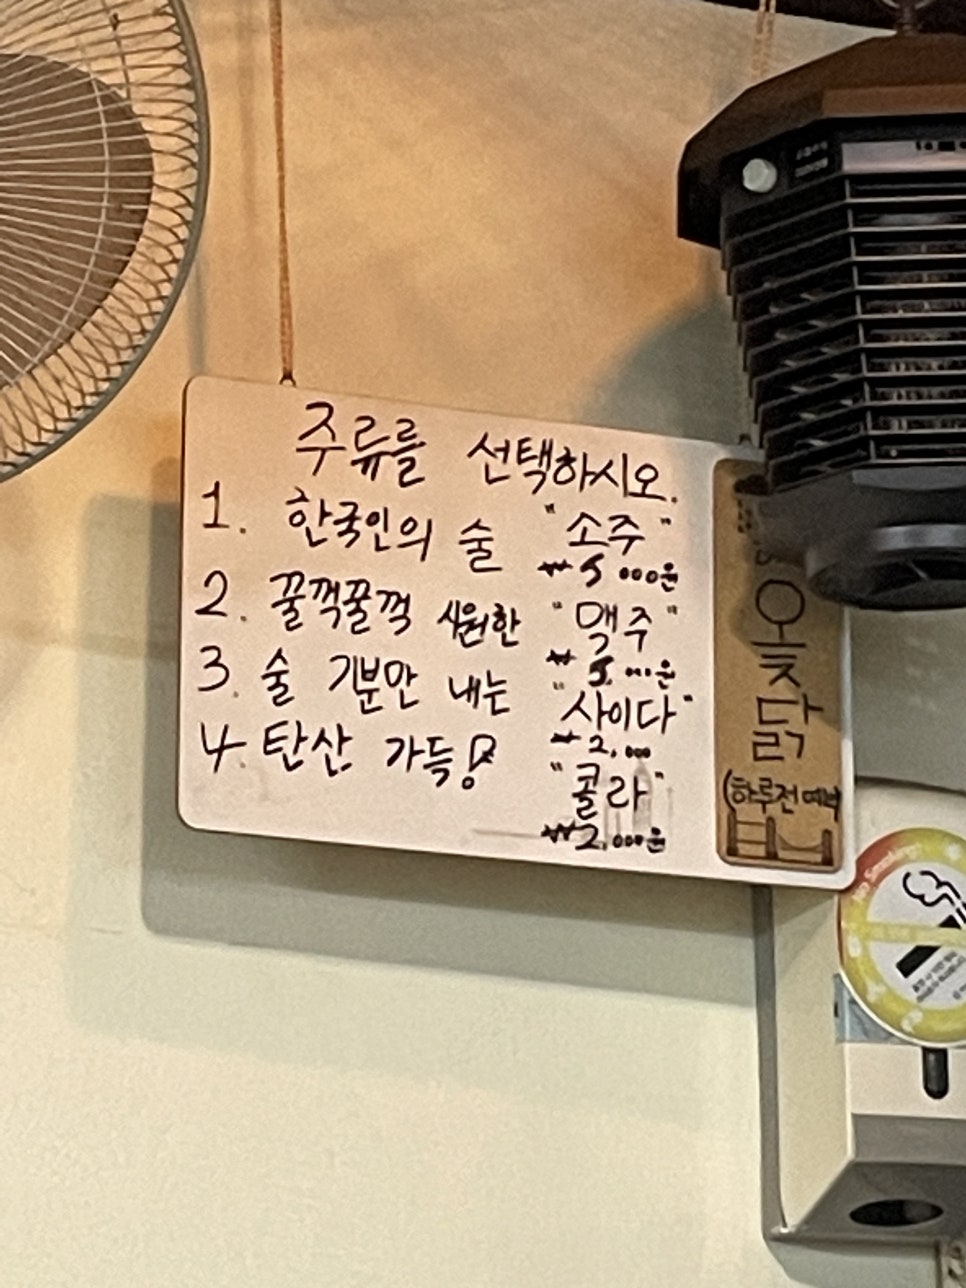 주류를 선택하시오.
1. 한국인의 술 "소주"
₩5,000원
2. 꿀꺽꿀꺽 시원한 "맥주"
₩5,000원
3. 술 기분만 내는 "사이다"
₩2,000
4. 탄산 가득! "콜라"
₩2,000원
옻닭
(하루전 예약
No Smoking!